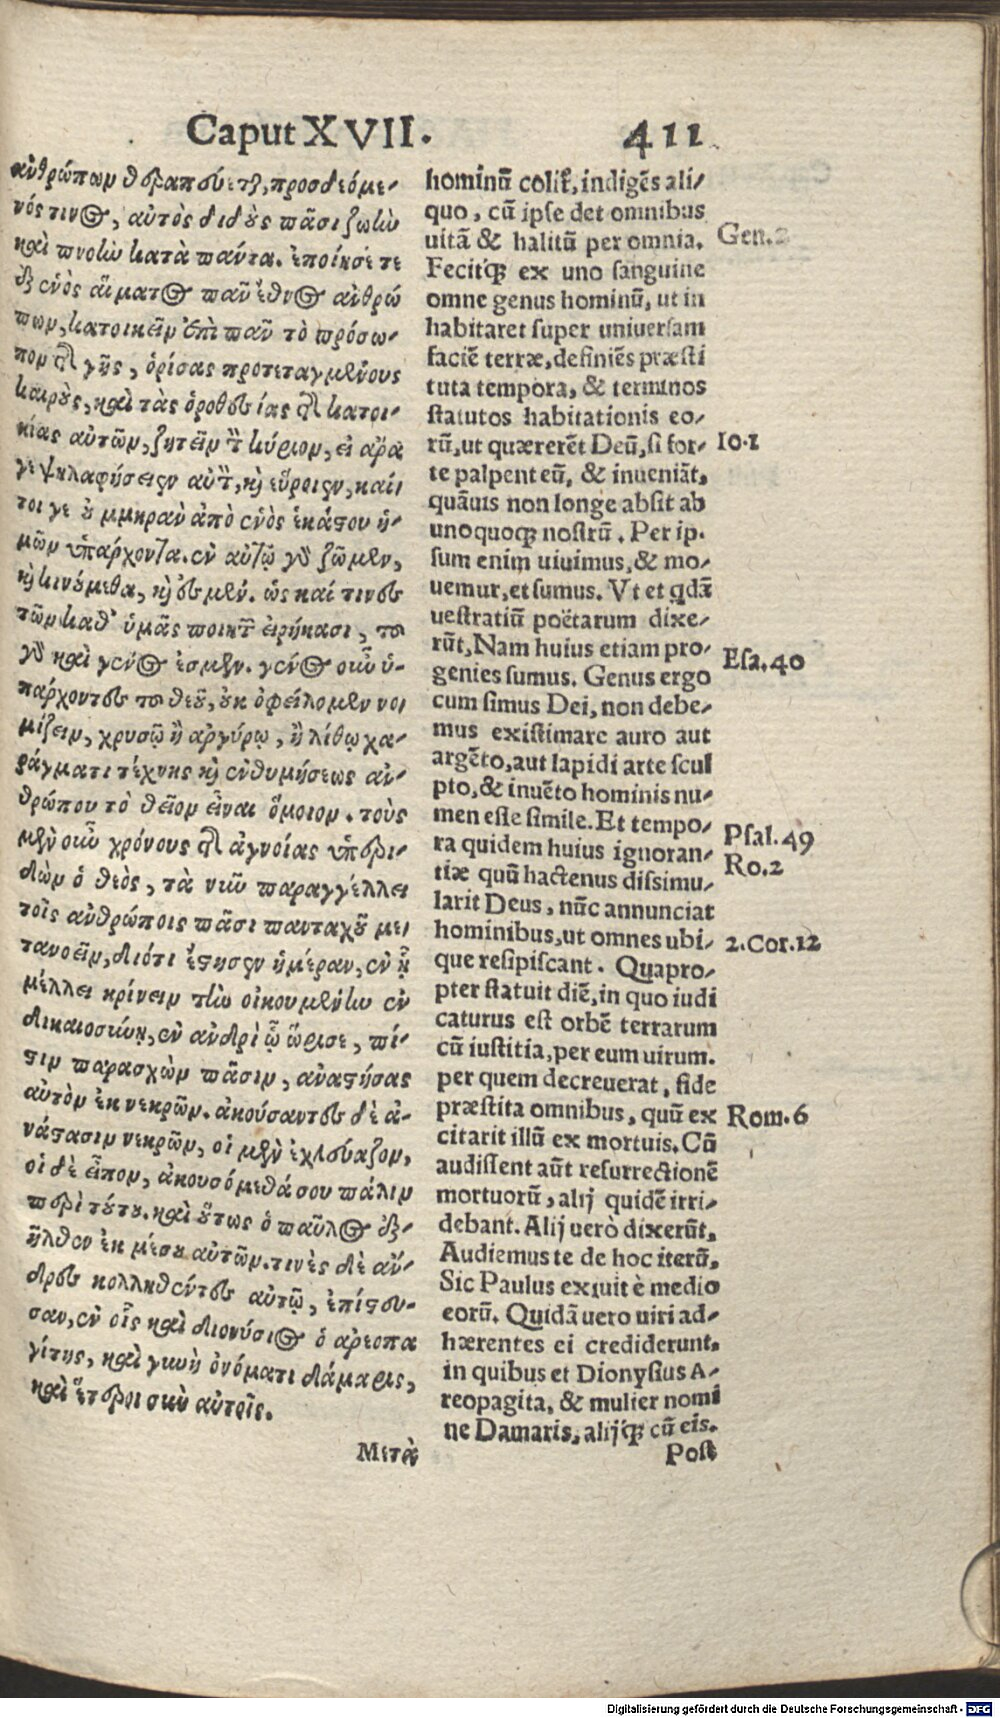 Caput XVII. 411
ἀνθρώπων θεραπεύεται, προσδεόμε-
νός τινος, αὐτὸς διδοὺς πᾶσι ζωὴν
καὶ πνοὴν κατὰ πάντα. ἐποίησέ τε
ἐξ ἑνὸς αἵματος πᾶν ἔθνος ἀνθρώ
πων, κατοικεῖν ἐπὶ πᾶν τὸ πρόσω-
πον τῆς γῆς, ὁρίσας προτεταγμένους
καιροὺς, καὶ τὰς ὁροθεσίας τῆς κατοι-
κίας αὐτῶν, ζητεῖν τὸν κύριον, εἰ ἄρα
γε ψηλαφήσειαν αὐτὸν, καὶ εὕροιεν, καί-
τοι γε οὐ μακρὰν ἀπὸ ἑνὸς ἑκάστου ἡ-
μῶν ὑπάρχοντα. ἐν αὐτῷ γὰρ ζῶμεν,
καὶ κινούμεθα, καὶ ἐσμέν. ὡς καί τινες
τῶν καθ' ὑμᾶς ποιητῶν εἰρήκασι, τοῦ
γὰρ καὶ γένος ἐσμὲν. γένος οὖν ὑ-
πάρχοντες τοῦ θεοῦ, οὐκ ὀφείλομεν νο-
μίζειν, χρυσῷ ἢ ἀργύρῳ, ἢ λίθῳ χα-
ράγματι τέχνης καὶ ἐνθυμήσεως ἀν-
θρώπου τὸ θεῖον εἶναι ὅμοιον. τοὺς
μὲν οὖν χρόνους τῆς ἀγνοίας ὑπερι-
δὼν ὁ θεὸς, τὰ νῦν παραγγέλλει
τοῖς ἀνθρώποις πᾶσι πανταχοῦ με-
τανοεῖν, διότι ἔστησεν ἡμέραν, ἐν ᾗ
μέλλει κρίνειν τὴν οἰκουμένην ἐν
δικαιοσύνῃ, ἐν ἀνδρὶ ᾧ ὥρισε, πί-
στιν παρασχὼν πᾶσιν, ἀναστήσας
αὐτὸν ἐκ νεκρῶν. ἀκούσαντες δὲ ἀ-
νάστασιν νεκρῶν, οἱ μὲν ἐχλεύαζον,
οἱ δὲ εἶπον, ἀκουσόμεθά σου πάλιν
περὶ τούτου. καὶ οὕτως ὁ παῦλος ἐξ-
ῆλθεν ἐκ μέσου αὐτῶν. τινὲς δὲ ἄν-
δρες κολληθέντες αὐτῷ, ἐπίστευ-
σαν, ἐν οἷς καὶ διονύσιος ὁ ἀρεοπα
γίτης, καὶ γυνὴ ὀνόματι δάμαρις,
καὶ ἕτεροι σὺν αὐτοῖς.
Μετὰ
hominũ colit̃, indigẽs ali-
quo, cũ ipse det omnibus
uitã & halitũ per omnia.
Fecitq́; ex uno sanguine
omne genus hominũ, ut in
habitaret super uniuersam
faciẽ terræ, definiẽs præsti
tuta tempora, & terminos
statutos habitationis eo-
rũ, ut quærerẽt Deũ, si for-
te palpent eũ, & inueniãt,
quãuis non longe absit ab
unoquoq; nostrũ. Per ip-
sum enim uiuimus, & mo-
uemur, et sumus. Vt et qdã
uestratiũ poëtarum dixe-
rũt, Nam huius etiam pro-
genies sumus. Genus ergo
cum simus Dei, non debe-
mus existimare auro aut
argẽto, aut lapidi arte scul
pto, & inuẽto hominis nu-
men esse simile. Et tempo-
ra quidem huius ignoran-
tiæ quũ hactenus dissimu-
larit Deus, nũc annunciat
hominibus, ut omnes ubi-
que resipiscant. Quapro-
pter statuit diẽ, in quo iudi
caturus est orbẽ terrarum
cũ iustitia, per eum uirum.
per quem decreuerat, fide
præstita omnibus, quũ ex
citarit illũ ex mortuis. Cũ
audissent aũt resurrectionẽ
mortuorũ, alij quidẽ irri-
debant. Alij uerò dixerũt,
Audiemus te de hoc iterũ,
Sic Paulus exiuit è medio
eorũ. Quidã uero uiri ad-
hærentes ei crediderunt,
in quibus et Dionysius A-
reopagita, & mulier nomi
ne Damaris, alijq́; cũ eis.
Post
Gen. 2
Io. 1
Esa. 40
Psal. 49
Ro. 2
2. Cor. 12
Rom. 6
Digitalisierung gefördert durch die Deutsche Forschungsgemeinschaft - DFG